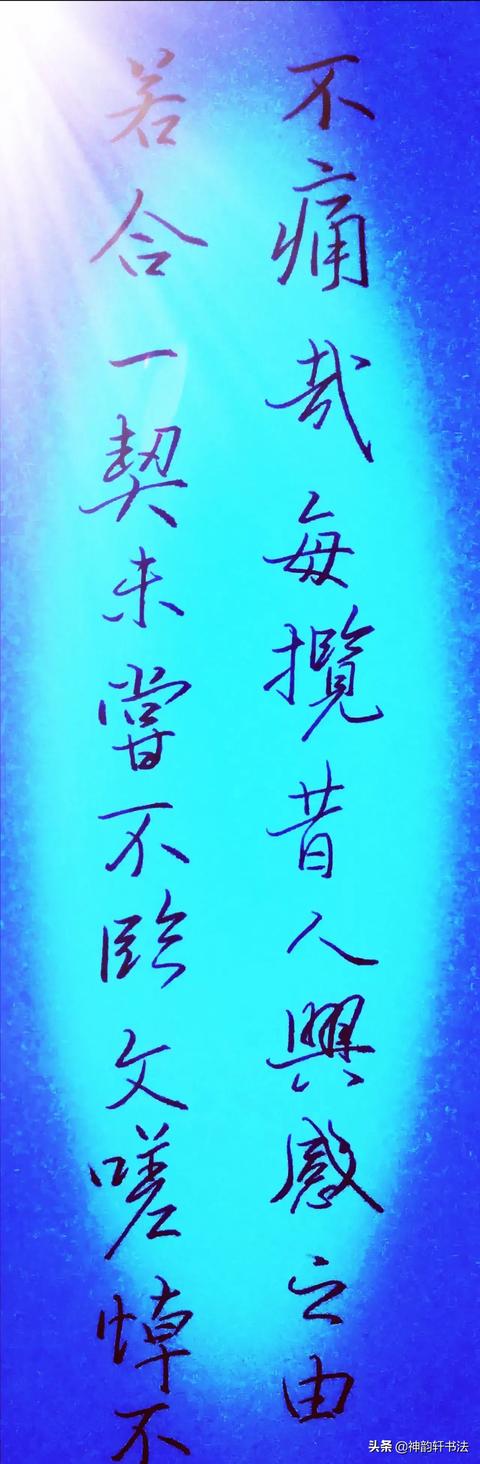 不痛哉每攬昔人興感之由
若合一契未嘗不臨文嗟悼不
头条 @神韵轩书法